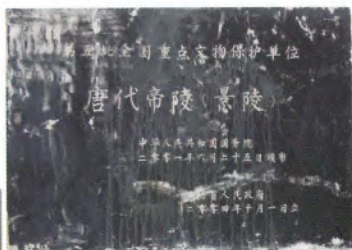 第五批全国重点文物保护单位
唐代帝陵（景陵）
中华人民共和国国务院
二零零一年六月二十五日颁布
人民政府
二零零四年十月一日立